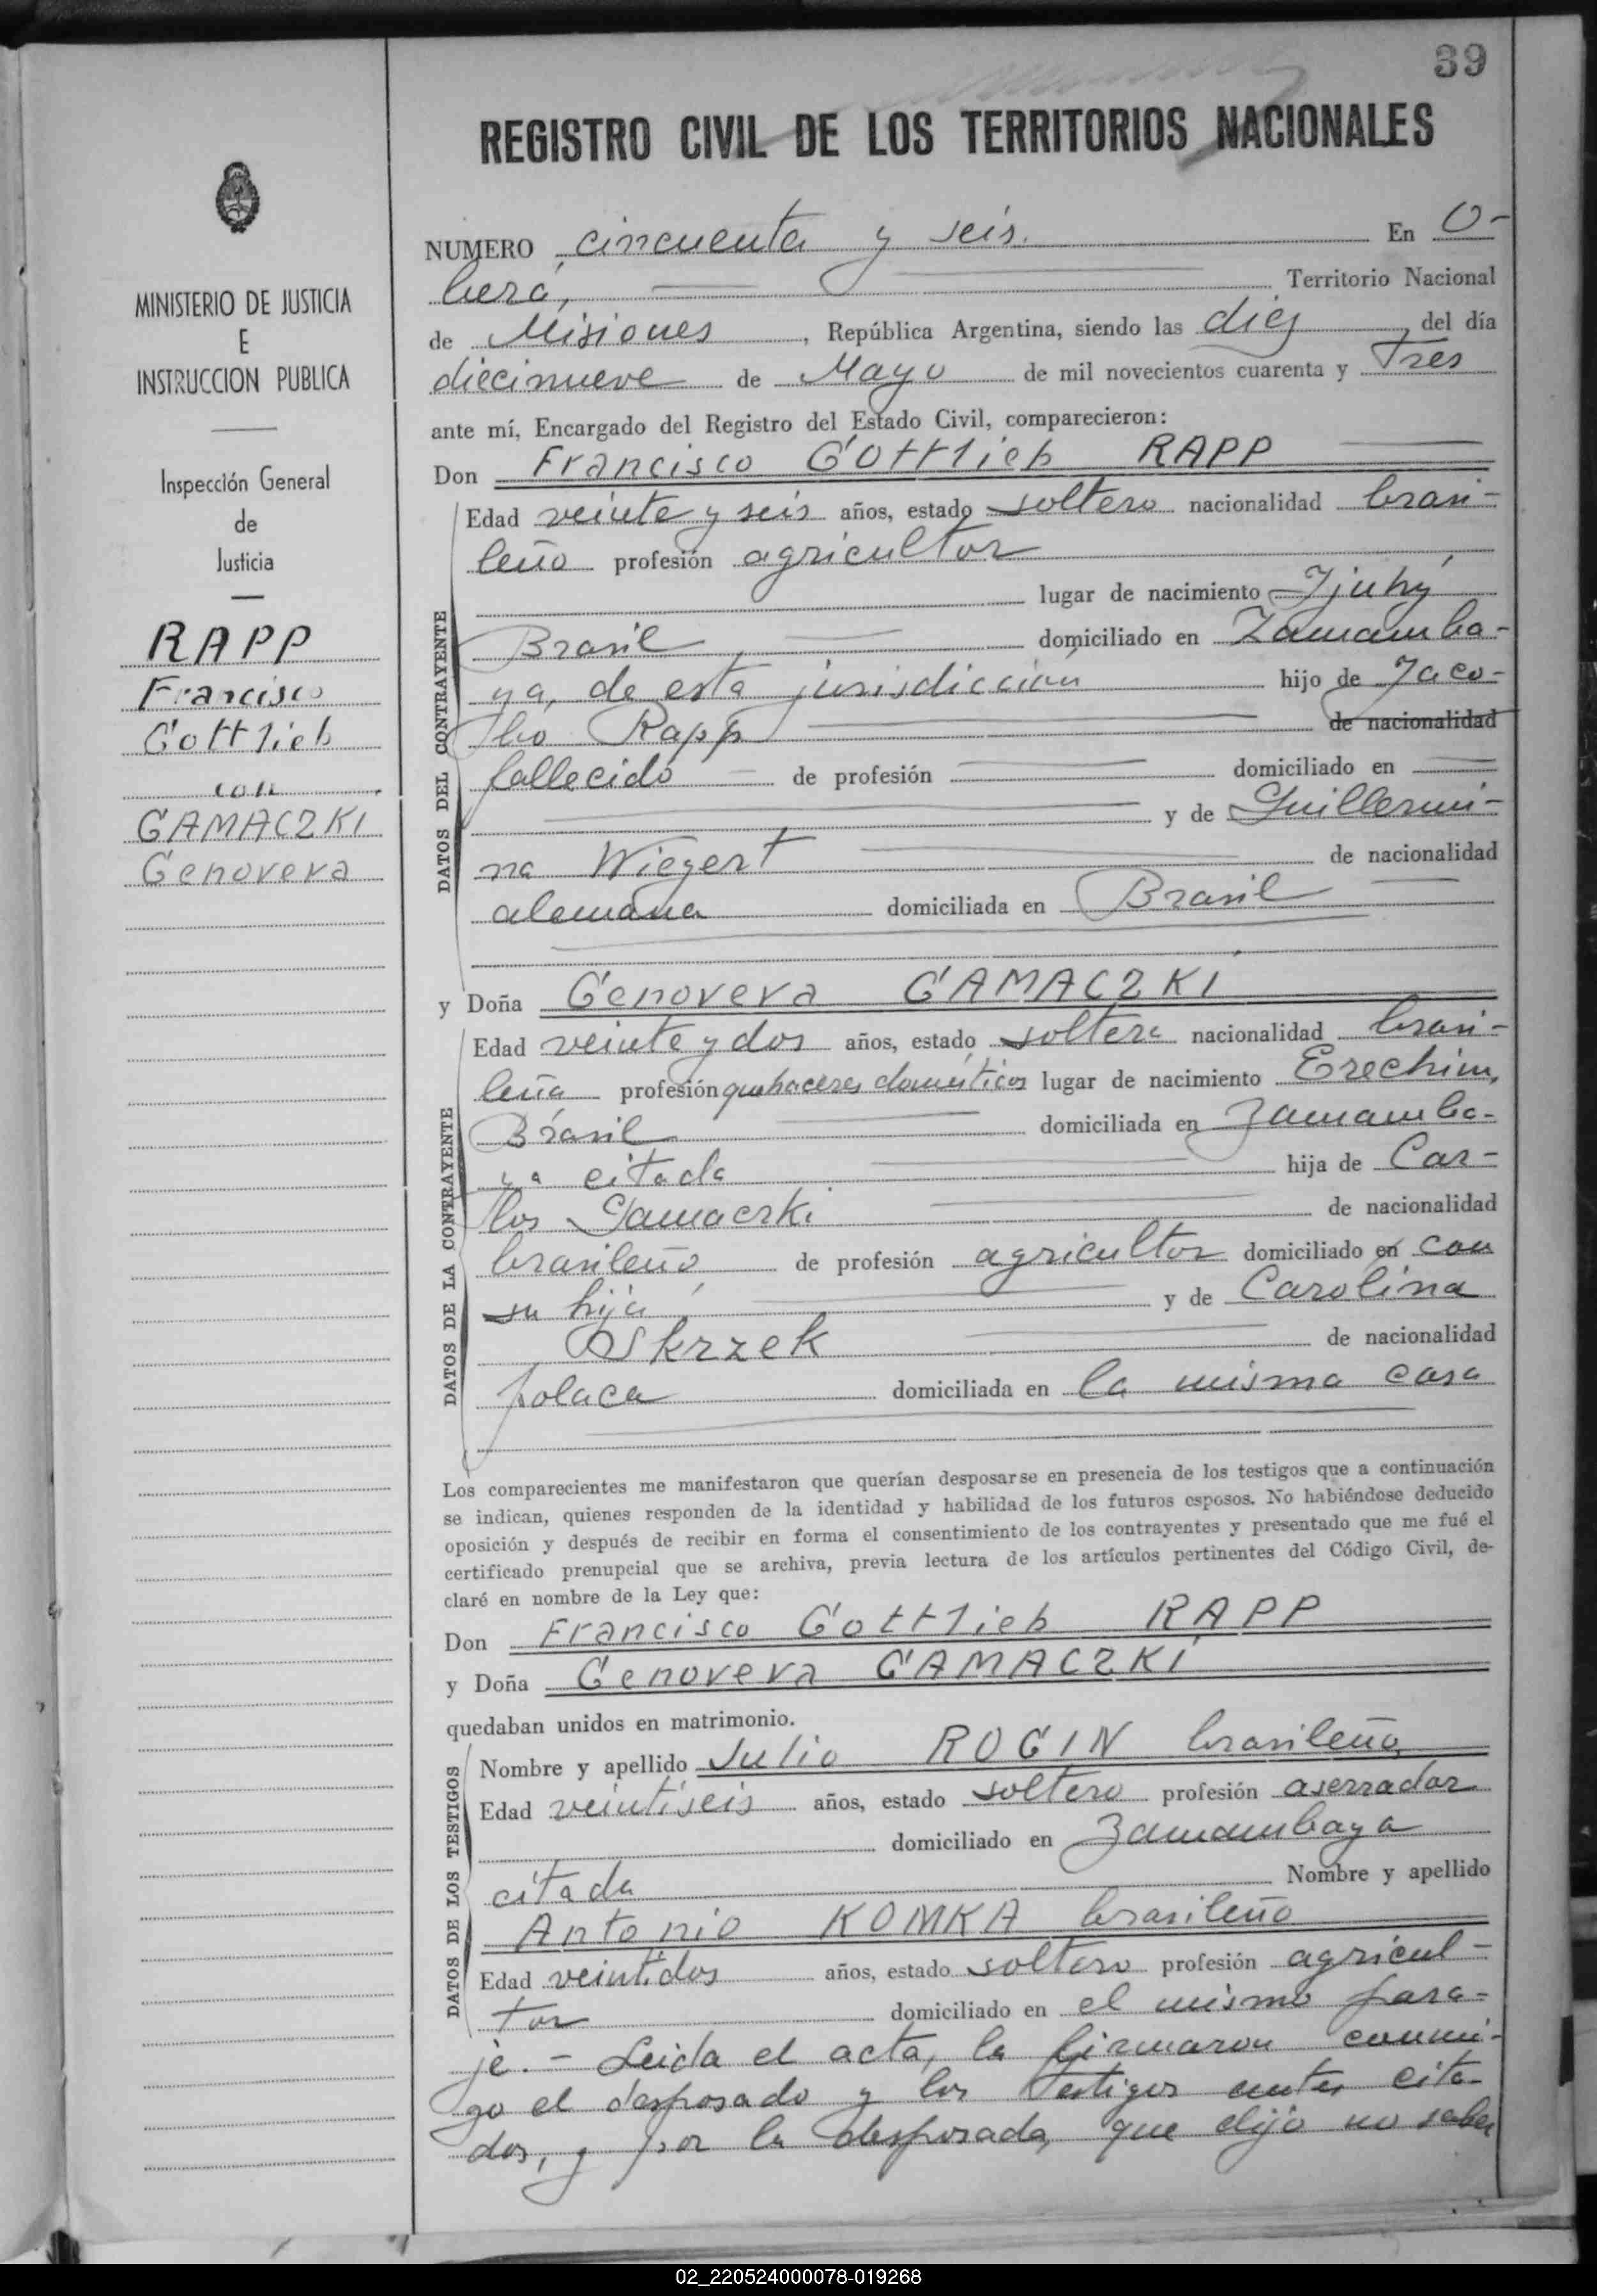 39
REGISTRO CIVIL DE LOS TERRITORIOS NACIONALES
MINISTERIO DE JUSTICIA
E
INSTRUCCION PUBLICA
Inspección General
de
Justicia
RAPP
Francisco
Gottlieb
con
GAMACZKI
Genoveva
NUMERO cincuenta y seis. En O-
berá, Territorio Nacional
de Misiones, República Argentina, siendo las diez, del día
diecinueve de Mayo de mil novecientos cuarenta y Tres
ante mí, Encargado del Registro del Estado Civil, comparecieron:
Don Francisco Gottlieb RAPP
DATOS DEL CONTRAYENTE
Edad veinte y seis años, estado soltero nacionalidad brasi-
leño profesión agricultor
lugar de nacimiento Ijuhy
Brasil, domiciliado en Zamamba-
ya, de esta jurisdicción hijo de Jaco-
bo Rapp de nacionalidad
fallecido de profesión domiciliado en
y de Guillermi-
na Wiegert de nacionalidad
alemana domiciliada en Brasil
y Doña Genoveva GAMACZKI
DATOS DE LA CONTRAYENTE
Edad veinte y dos años, estado soltera nacionalidad brasi-
leña profesión quehaceres domésticos lugar de nacimiento Erechim,
Brasil domiciliada en Zamamba-
ya citada hija de Car-
los Gamaczki de nacionalidad
brasileño de profesión agricultor domiciliado en con
su hija y de Carolina
Skrzek de nacionalidad
polaca domiciliada en la misma casa
Los comparecientes me manifestaron que querían desposarse en presencia de los testigos que a continuación
se indican, quienes responden de la identidad y habilidad de los futuros esposos. No habiéndose deducido
oposición y después de recibir en forma el consentimiento de los contrayentes y presentado que me fué el
certificado prenupcial que se archiva, previa lectura de los artículos pertinentes del Código Civil, de-
claré en nombre de la Ley que:
Don Francisco Gottlieb RAPP
y Doña Genoveva GAMACZKI
quedaban unidos en matrimonio.
DATOS DE LOS TESTIGOS
Nombre y apellido Julio ROGIN brasileño,
Edad veintiseis años, estado soltero profesión aserrador
domiciliado en Zamambaya
citada Nombre y apellido
Antonio KOMKA brasileño
Edad veintidos años, estado soltero profesión agricul-
tor domiciliado en el mismo para-
je.- Leida el acta, la firmaron conmi-
go el desposado y los testigos antes cita-
dos, y por la desposada, que dijo no saber
02_220524000078-019268